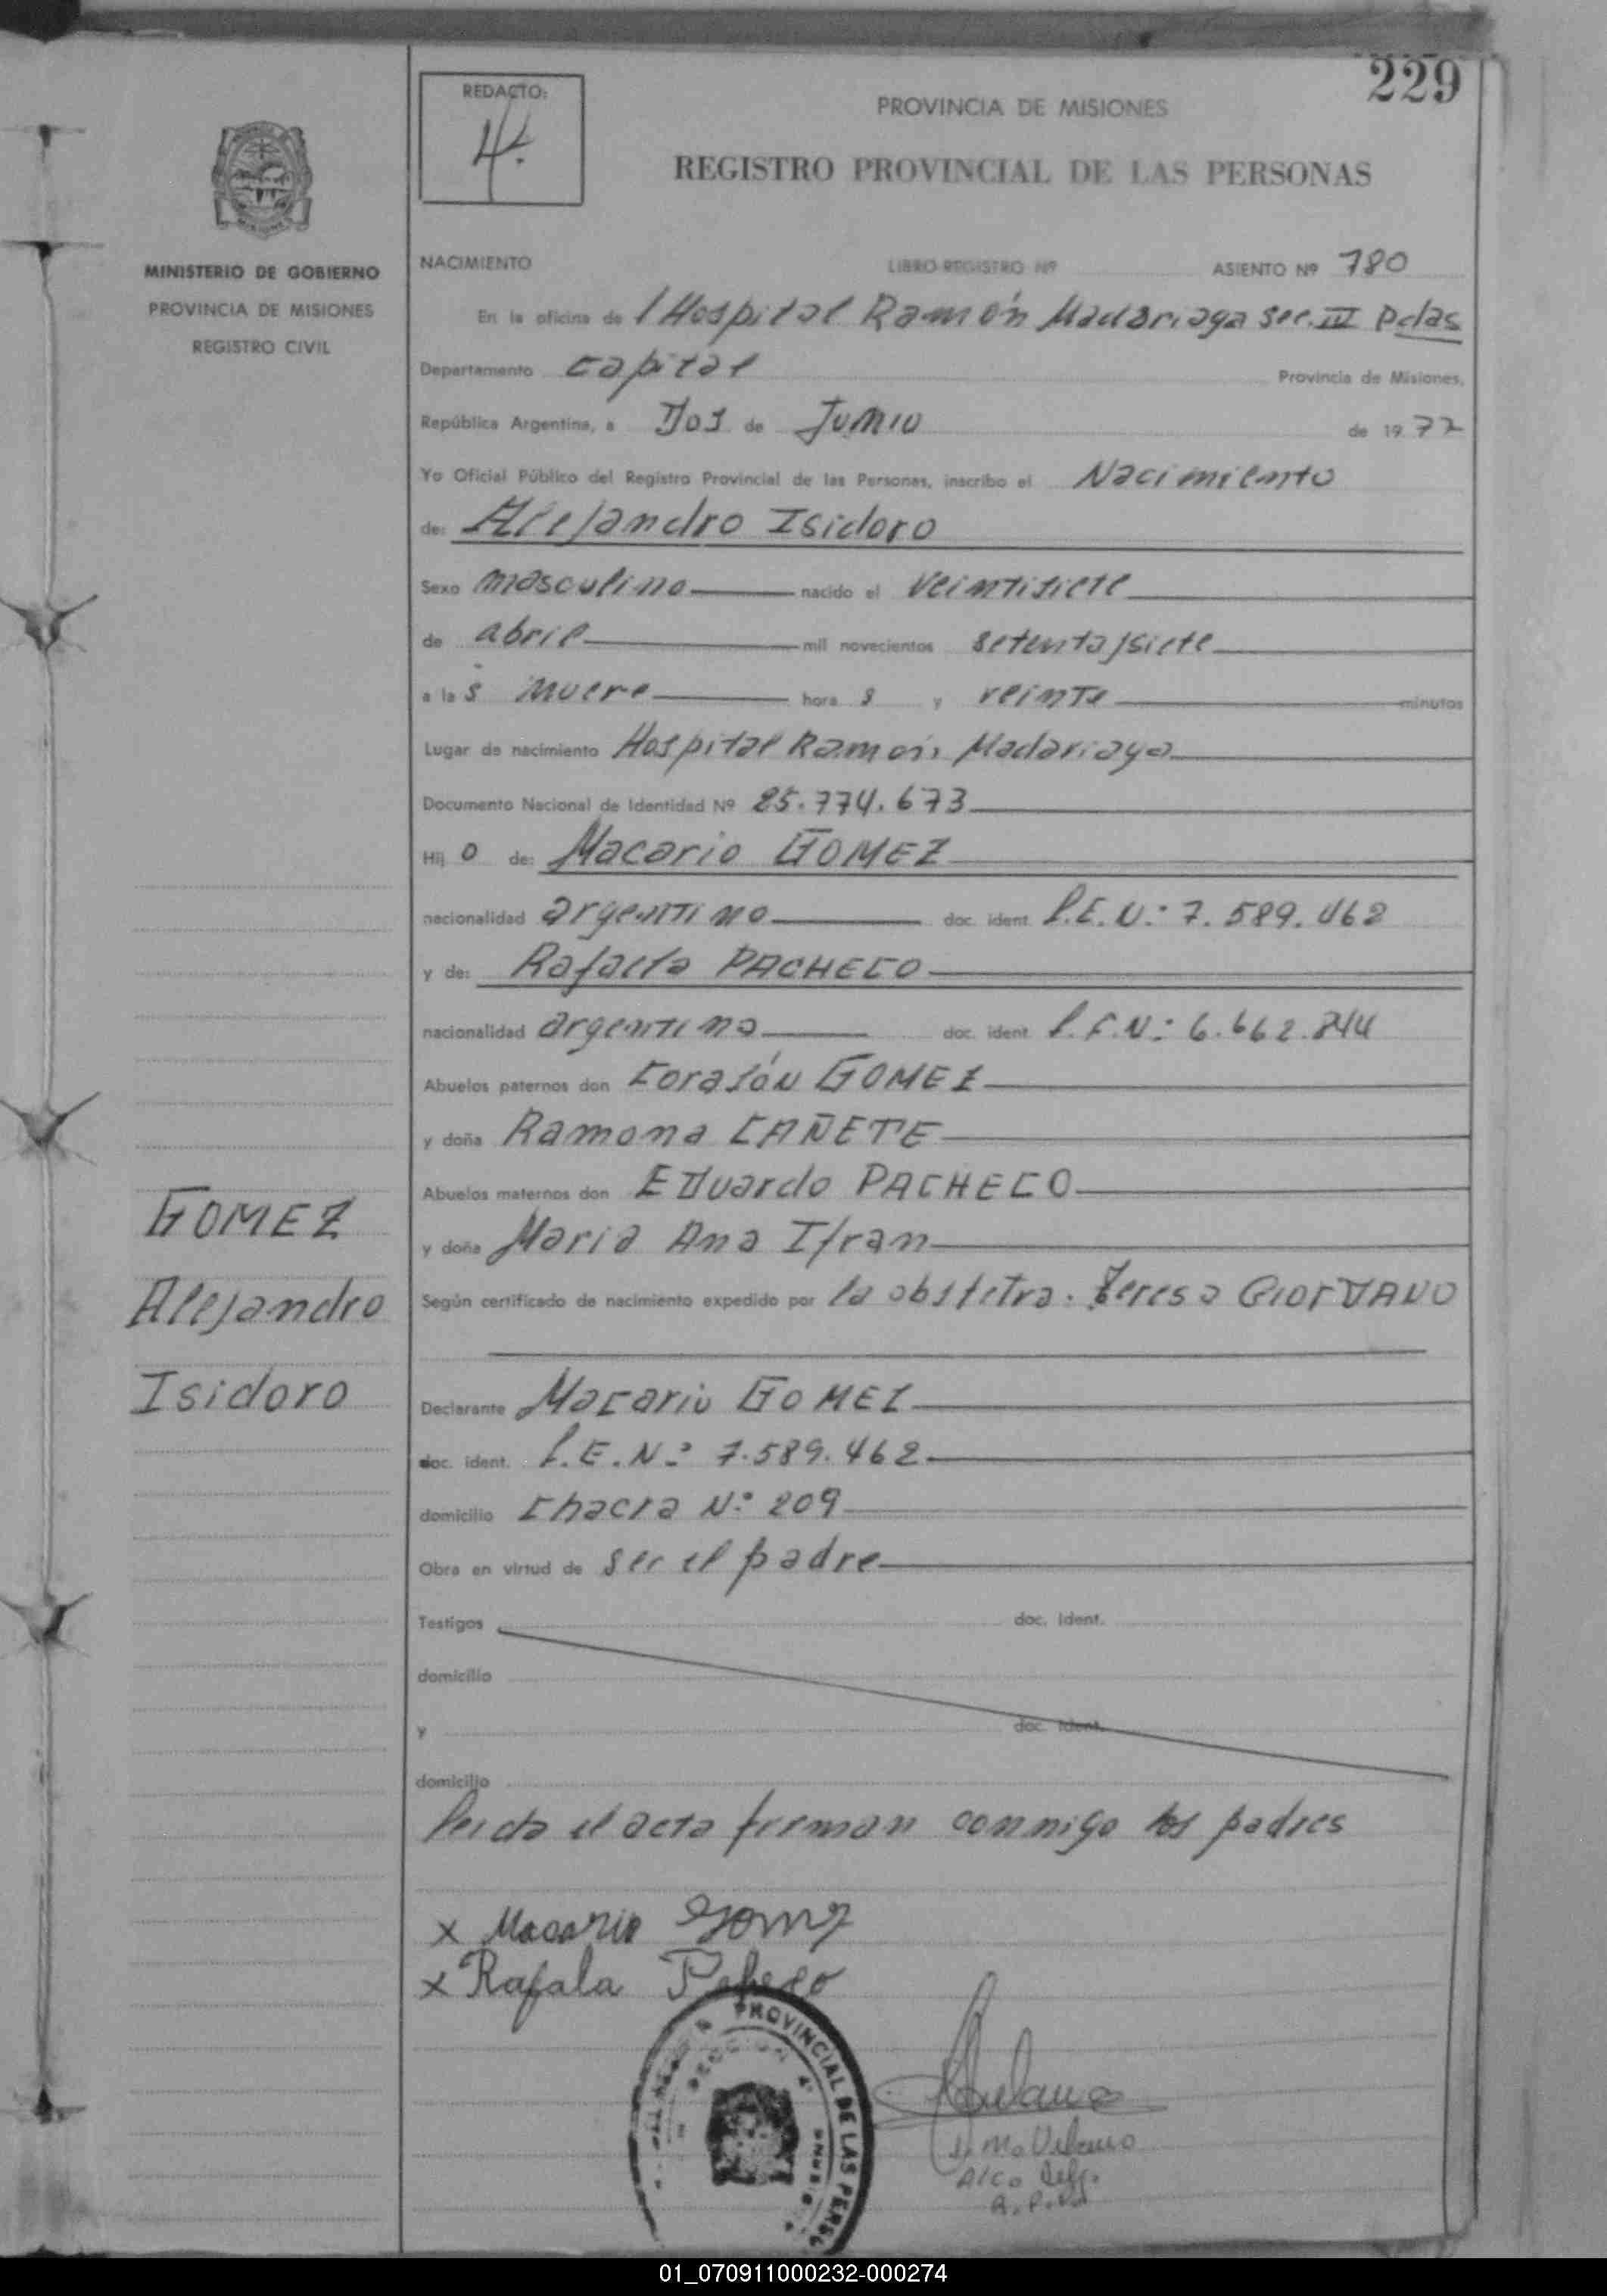 229
REDACTO:
PROVINCIA DE MISIONES
REGISTRO PROVINCIAL DE LAS PERSONAS
MINISTERIO DE GOBIERNO
PROVINCIA DE MISIONES
REGISTRO CIVIL
NACIMIENTO LIBRO REGISTRO Nº ASIENTO Nº 780
En la oficina de l Hospital Ramón Madariaga sec. IV Pdas
Departamento Capital Provincia de Misiones,
República Argentina, a Dos de Junio de 1977
Yo Oficial Público del Registro Provincial de las Personas, inscribo el Nacimiento
de: Alejandro Isidoro
Sexo masculino nacido el veintisiete
de abril mil novecientos setenta y siete
a las nueve horas y veinte minutos
Lugar de nacimiento Hospital Ramón Madariaga
Documento Nacional de Identidad Nº 25.774.673
Hijo de: Macario GOMEZ
nacionalidad argentino doc. ident. L.E.N.: 7.589.462
y de: Rafaela PACHECO
nacionalidad argentina doc. ident. 6.662.844
Abuelos paternos don Corasón GOMEZ
y doña Ramona CAÑETE
Abuelos maternos don EDuardo PACHECO
y doña Maria Ana Ifran
Según certificado de nacimiento expedido por la obstetra. Teresa GIORDANO
Declarante Macario GOMEZ
doc. ident. L.E.N.: 7.589.462
domicilio Chacra N.º 209
Obra en virtud de ser el padre
Testigos doc. ident.
domicilio
y doc. ident.
domicilio
Leida el acta firman conmigo los padres
GOMEZ
Alejandro
Isidoro
x Macario Gomez
x Rafala
PROVINCIAL DE LAS PERSO
SECCION 4º
MISIONES
01_070911000232-000274